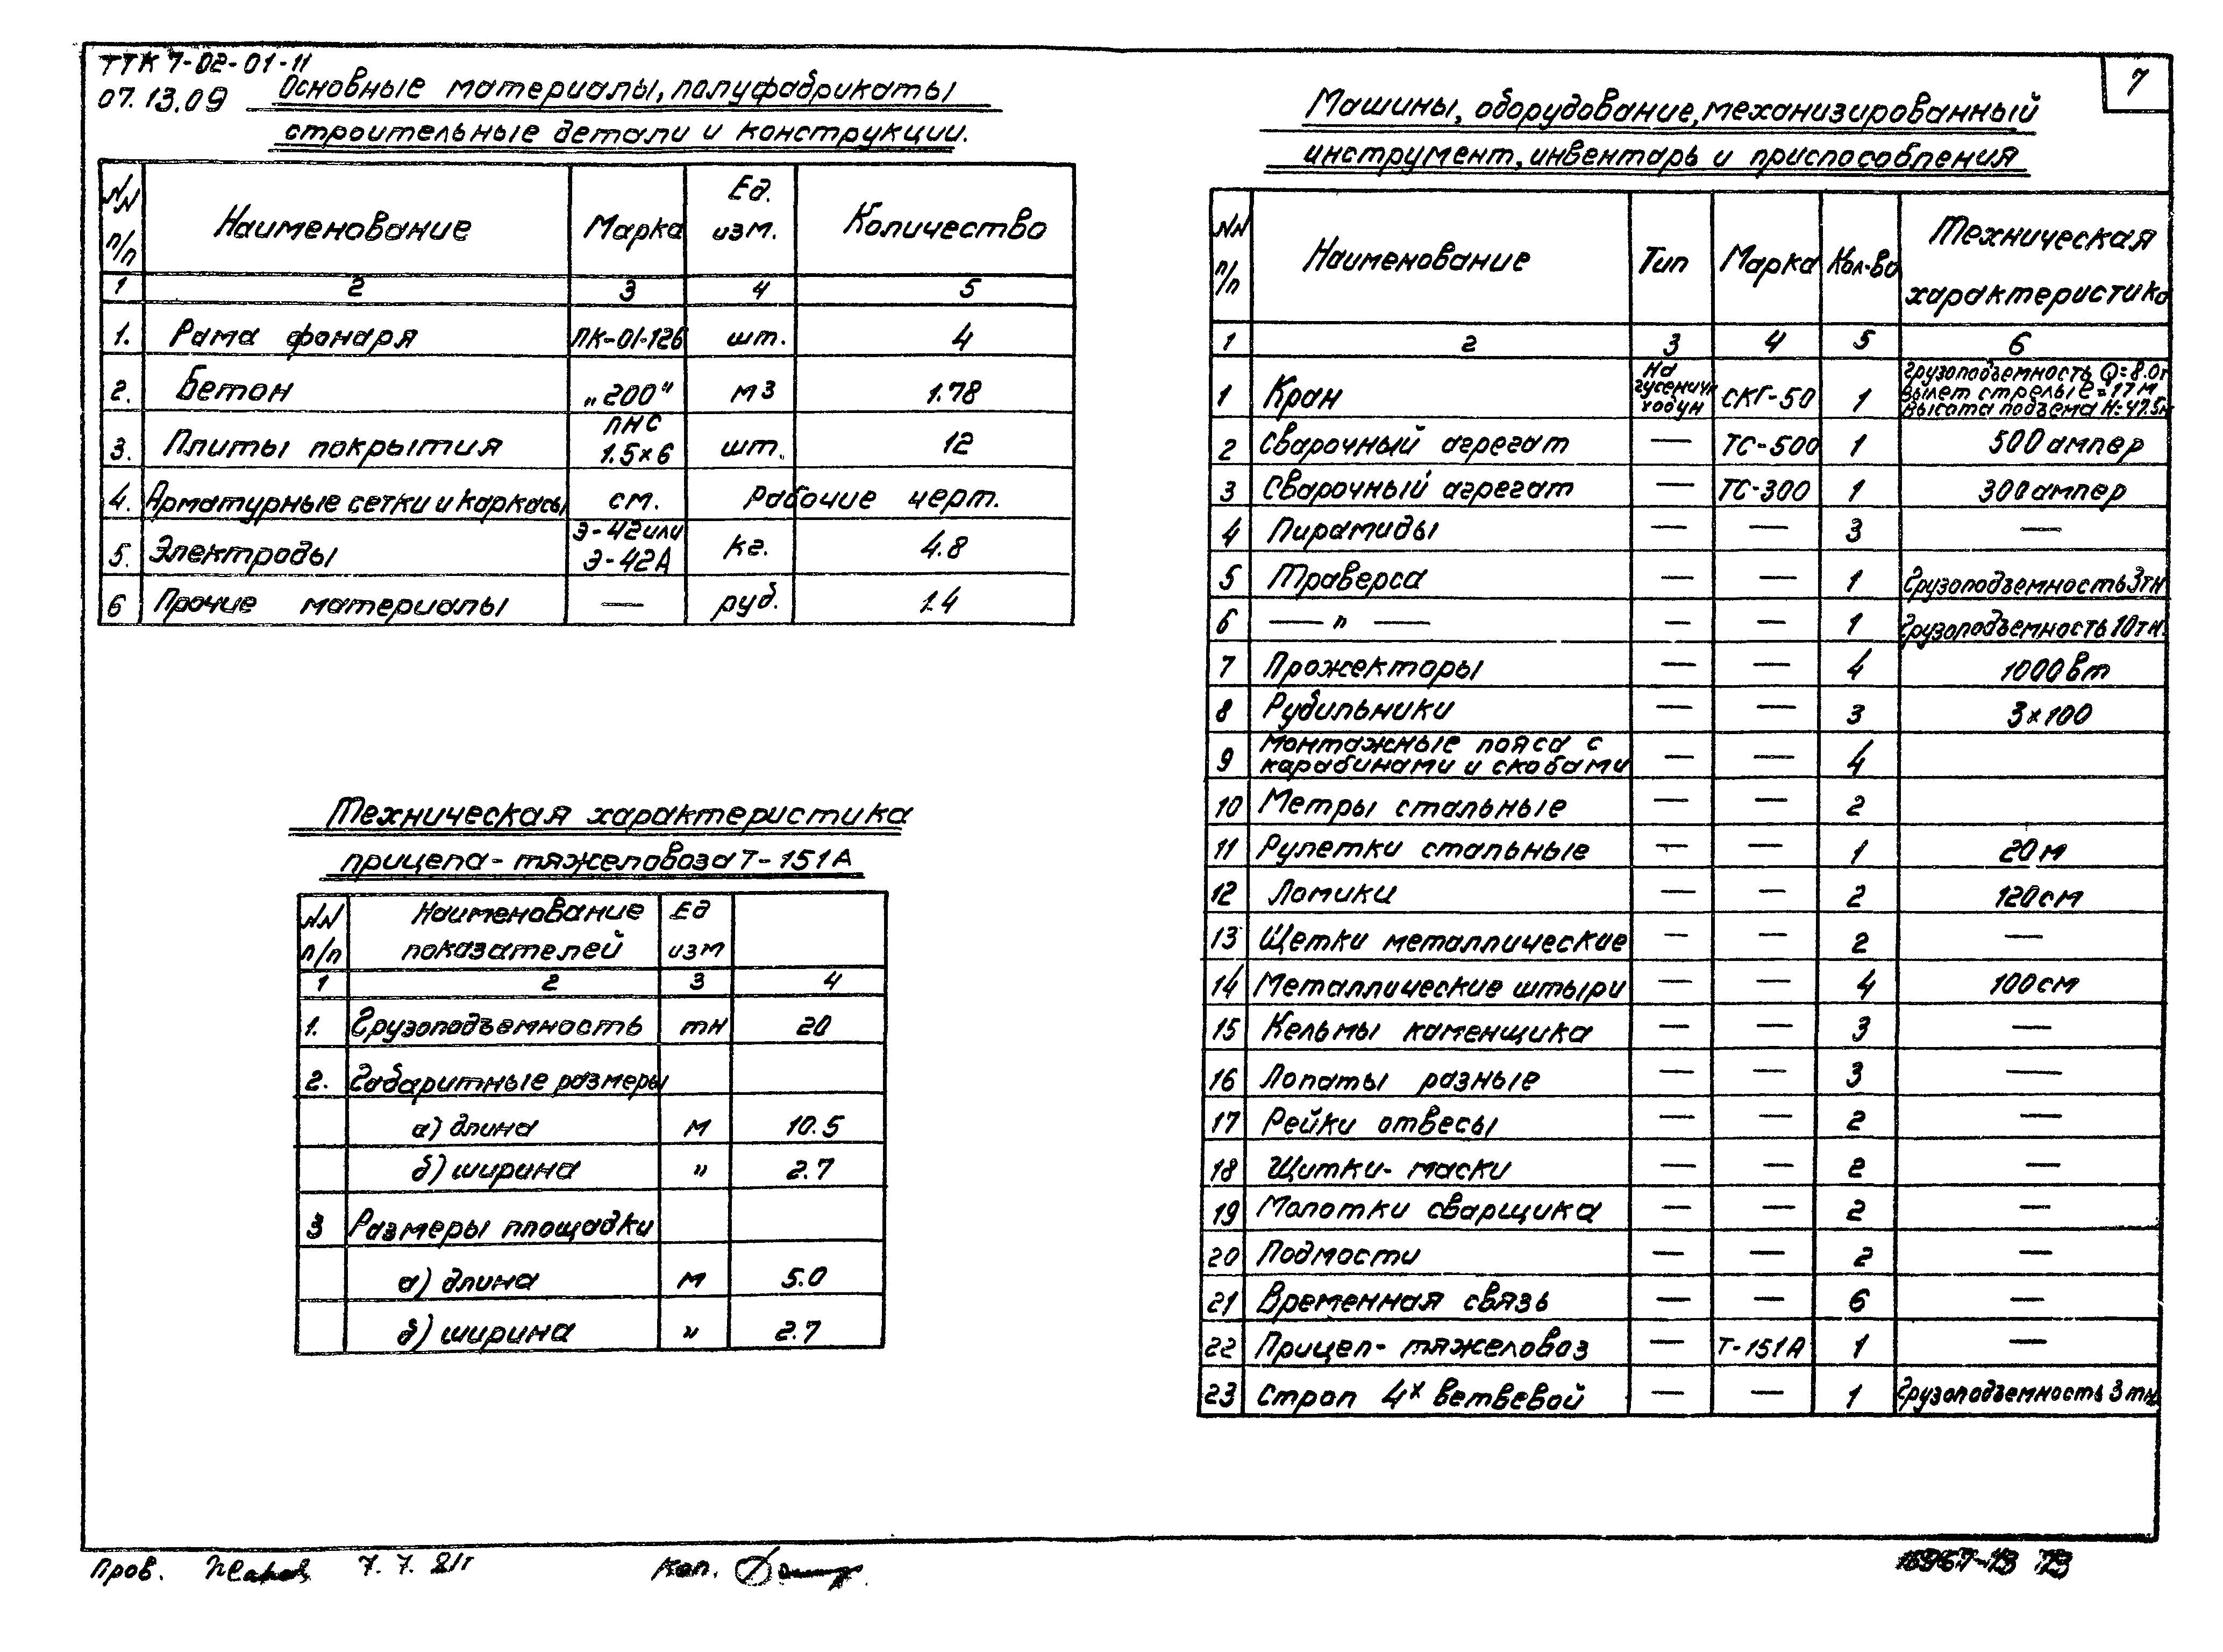 ТТК 7-02-01-11
07.13.09
7
Основные материалы, полуфабрикаты
строительные детали и конструкции.
NN п/п Наименование Марка Ед. изм. Количество
1 2 3 4 5
1. Рама фонаря ПК-01-126 шт. 4
2. Бетон „200" м3 1.78
3. Плиты покрытия ПНС 1.5×6 шт. 12
4. Арматурные сетки и каркасы см. рабочие черт.
5. Электроды Э-42 или Э-42А кг. 4.8
6 Прочие материалы — руб. 1.4
Техническая характеристика
прицепа-тяжеловоза Т-151А
NN п/п Наименование показателей Ед изм
1 2 3 4
1. Грузоподъемность тн 20
2. Габаритные размеры
а) длина м 10.5
б) ширина " 2.7
3 Размеры площадки
а) длина м 5.0
б) ширина " 2.7
Машины, оборудование, механизированный
инструмент, инвентарь и приспособления
NN п/п Наименование Тип Марка Кол-во Техническая характеристика
1 2 3 4 5 6
1 Кран На гусеничн ходун СКГ-50 1 Грузоподъемность Q=8.0т Вылет стрелы ℓ=17м Высота подъема H=47.5м
2 Сварочный агрегат — ТС-500 1 500 ампер
3 Сварочный агрегат — ТС-300 1 300 ампер
4 Пирамиды — — 3 —
5 Траверса — — 1 Грузоподъемность 3тн
6 — " — — — 1 Грузоподъемность 10тн.
7 Прожекторы — — 4 1000 вт
8 Рубильники — — 3 3×100
9 Монтажные пояса с карабинами и скобами — — 4
10 Метры стальные — — 2
11 Рулетки стальные — — 1 20 м
12 Ломики — — 2 120 см
13 Щетки металлические — — 2 —
14 Металлические штыри — — 4 100 см
15 Кельмы каменщика — — 3 —
16 Лопаты разные — — 3 —
17 Рейки отвесы — — 2 —
18 Щитки-маски — — 2 —
19 Молотки сварщика — — 2 —
20 Подмости — — 2 —
21 Временная связь — — 6 —
22 Прицеп-тяжеловоз — Т-151А 1 —
23 Строп 4х ветвевой — — 1 Грузоподъемность 3 тн.
Пров. 7.7.81г Коп.